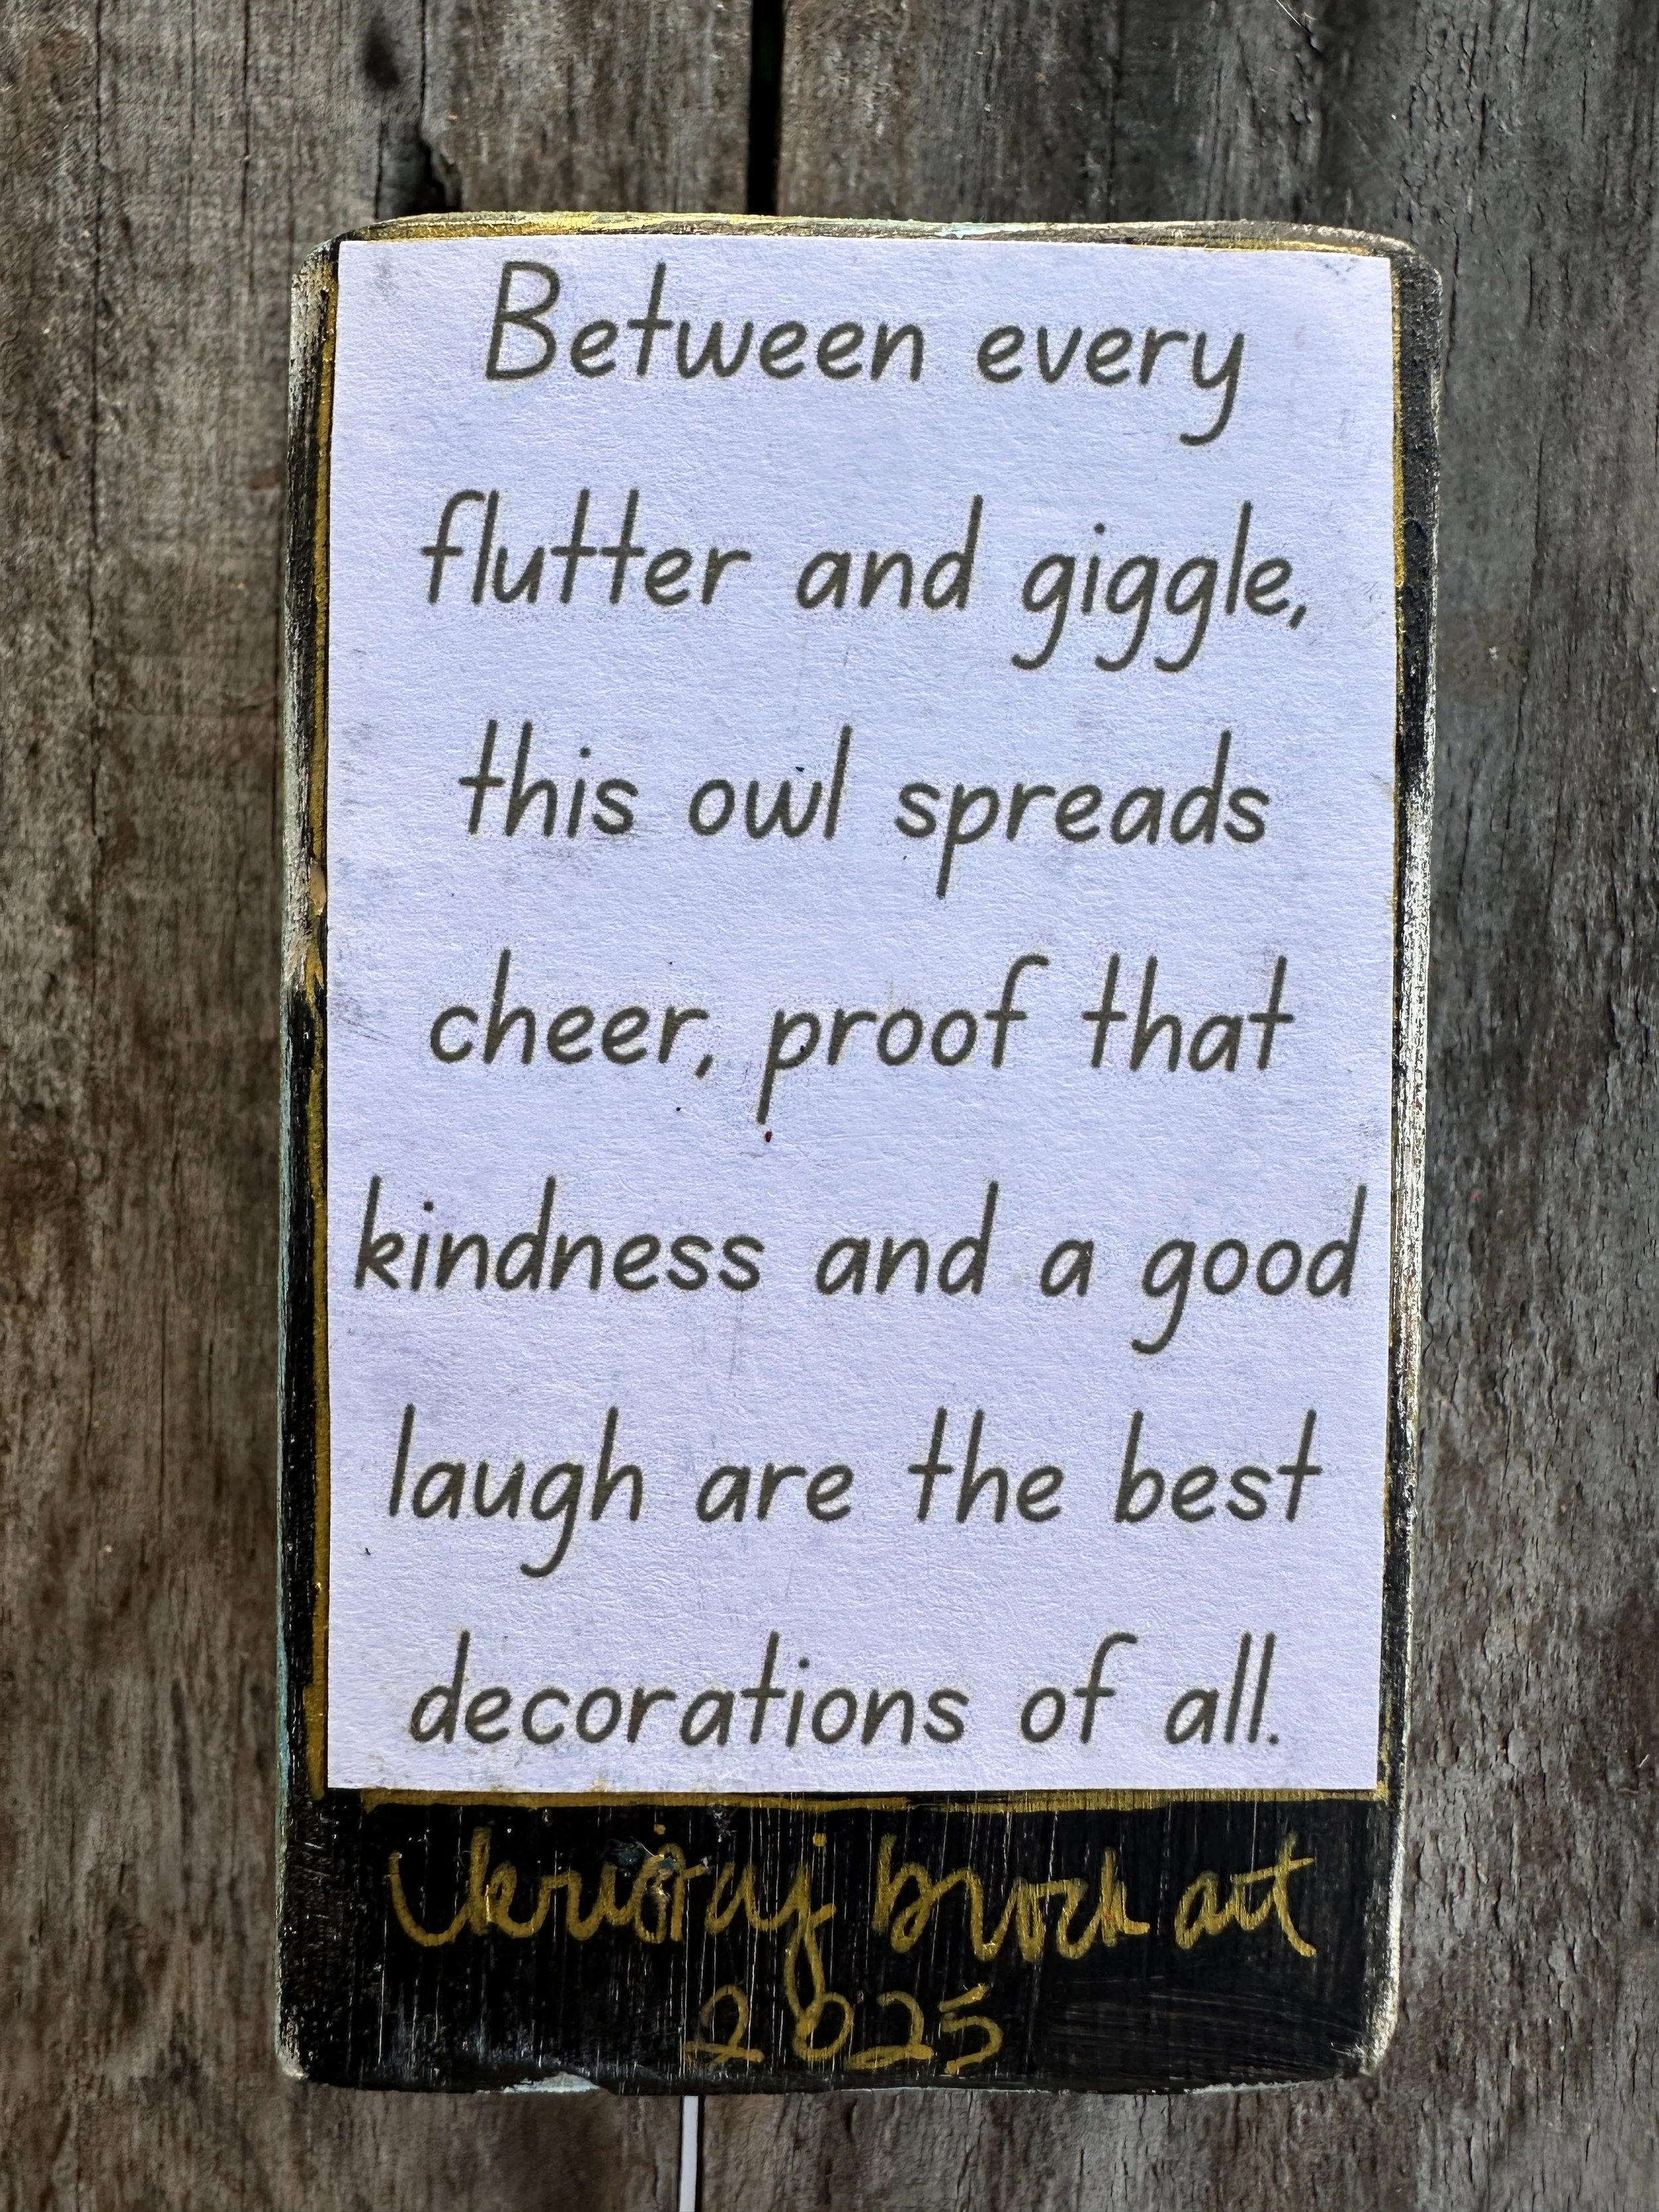 Between every
flutter and giggle,
this owl spreads
cheer, proof that
kindness and a good
laugh are the best
decorations of all.
brock art
2025